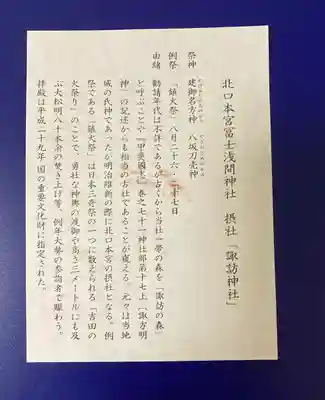 北口本宮冨士浅間神社　摂社「諏訪神社」
祭神　建御名方神　八坂刀売神
例祭　「鎮火祭」八月二十六・二十七日
由緒　勧請年代は不詳であるが古くから当社一帯の森を「諏訪の森」
と呼ぶことや『甲斐国志』巻之七十一神社部第十七上「諏方明
神」の記述からも相当の古社であることが窺える。元々は当地
域の氏神であったが明治維新の際に北口本宮の摂社となる。例
祭である「鎮火祭」は日本三奇祭の一つに数えられる「吉田の
火祭り」のことで、勇壮な神輿の渡御や高さ三メートルにも及
ぶ大松明八十本余の焚き上げ等、例年大勢の参詣者で賑わう。
拝殿は平成二十九年国の重要文化財に指定された。